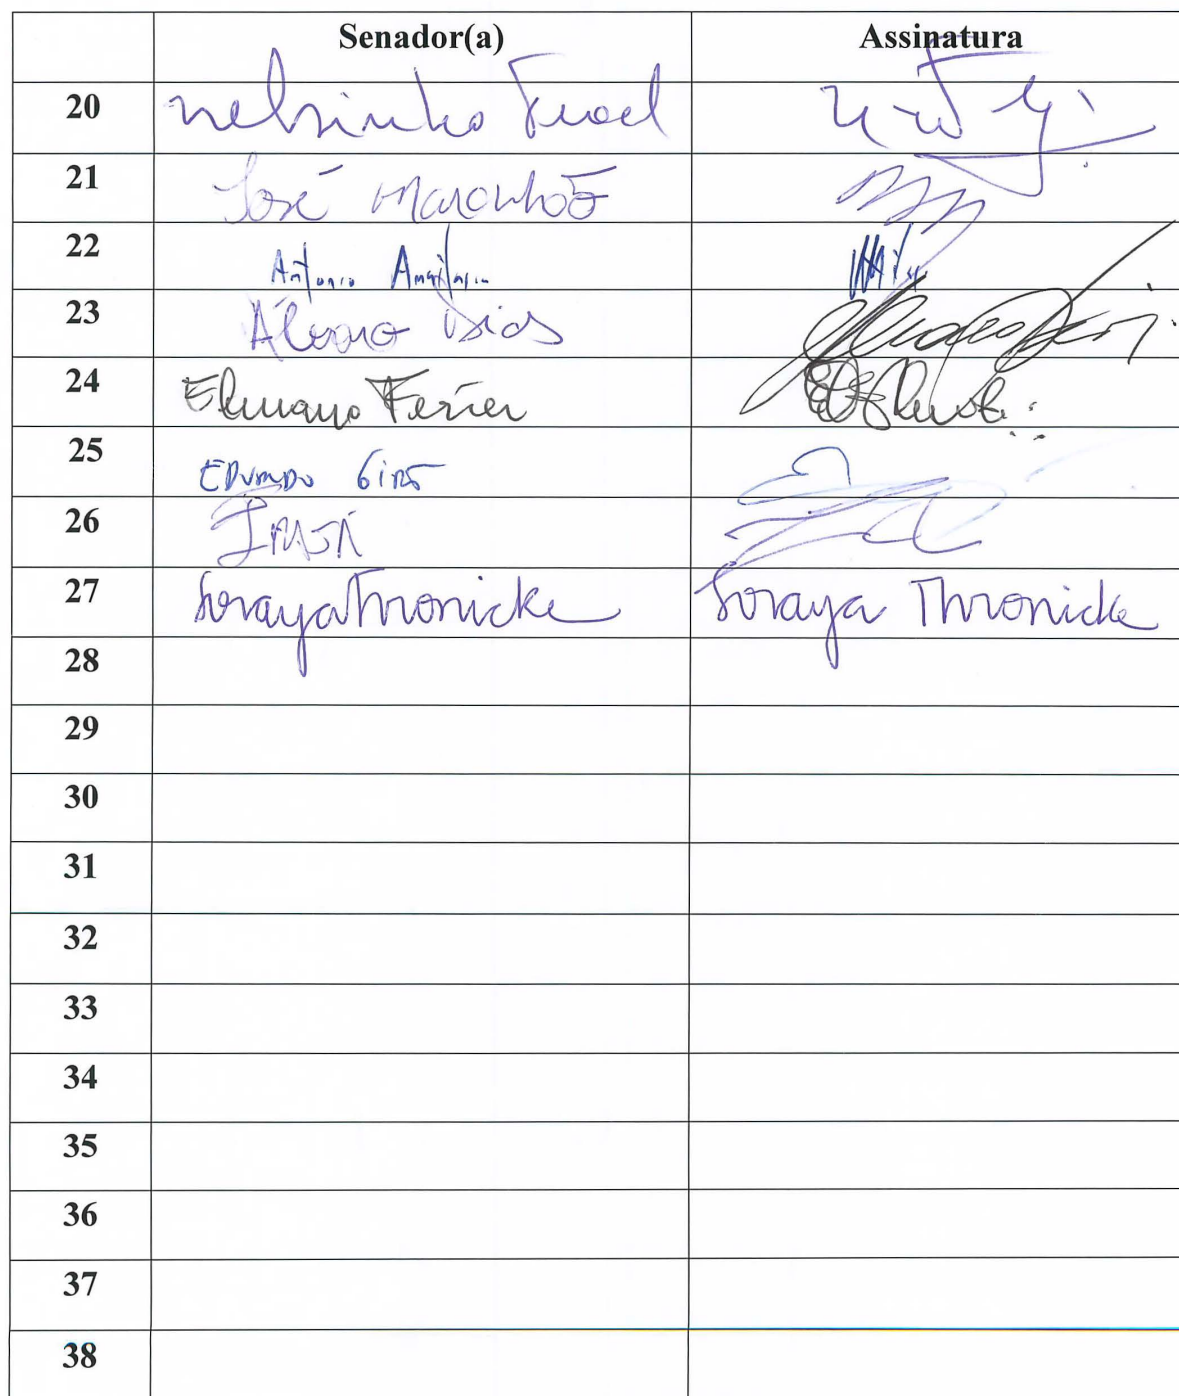 Senador(a) Assinatura
20 Nelsinho Trad
21 José Maranhão
22 Antonio Anastasia
23 Álvaro Dias
24 Elmano Férrer
25 EDUARDO GIRÃO
26 IRAJÁ
27 Soraya Thronicke Soraya Thronicke
28
29
30
31
32
33
34
35
36
37
38